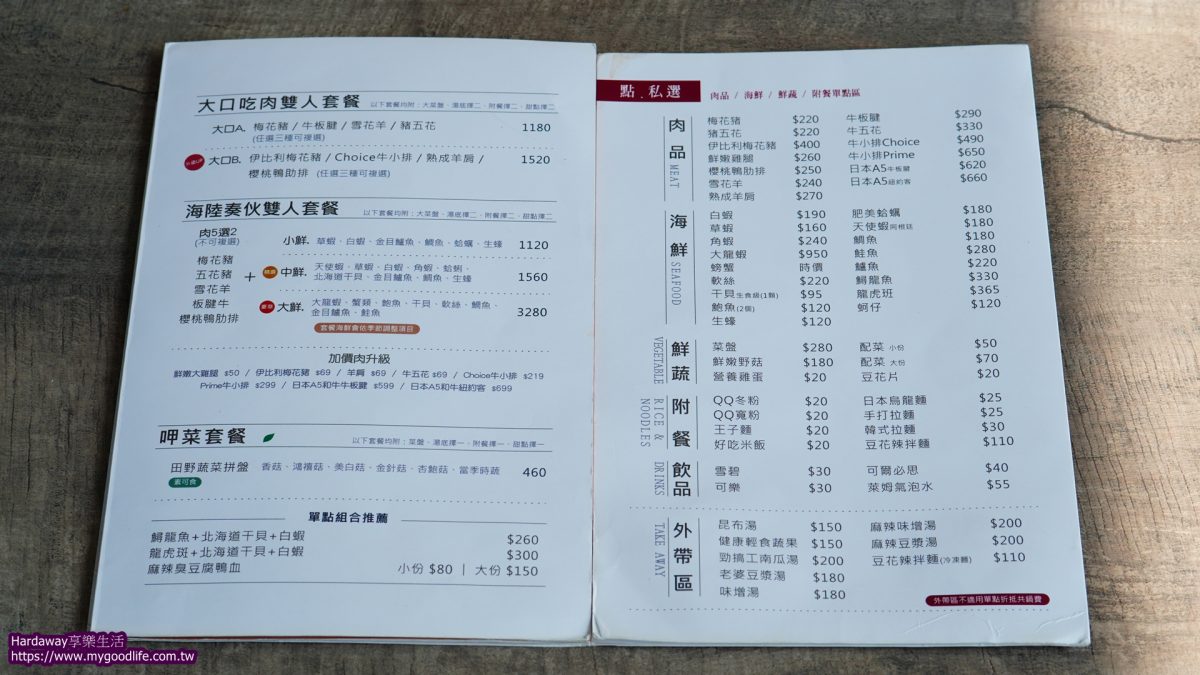 大口吃肉雙人套餐 以下套餐均附：大菜盤、湯底擇二、附餐擇二、甜點擇二
大口A. 梅花豬 / 牛板腱 / 雪花羊 / 豬五花 1180
(任選三種可複選)
大口B. 伊比利梅花豬 / Choice牛小排 / 熟成羊肩 / 1520
櫻桃鴨肋排 (任選三種可複選)
海陸奏伙雙人套餐 以下套餐均附：大菜盤、湯底擇二、附餐擇二、甜點擇二
肉5選2
(不可複選)
梅花豬
五花豬
雪花羊
板腱牛
櫻桃鴨肋排
+
小鮮. 草蝦、白蝦、金目鱸魚、鯛魚、蛤蠣、生蠔 1120
中鮮. 天使蝦、草蝦、白蝦、角蝦、蛤蜊、 1560
北海道干貝、金目鱸魚、鯛魚、生蠔
大鮮. 大龍蝦、蟹類、鮑魚、干貝、軟絲、鯛魚、 3280
金目鱸魚、鮭魚
套餐海鮮會依季節調整項目
加價肉升級
鮮嫩大雞腿 $50 / 伊比利梅花豬 $69 / 羊肩 $69 / 牛五花 $69 / Choice牛小排 $219
Prime牛小排 $299 / 日本A5和牛牛板腱 $599 / 日本A5和牛紐約客 $699
呷菜套餐 以下套餐均附：菜盤、湯底擇一、附餐擇一、甜點擇一
田野蔬菜拼盤 香菇、鴻禧菇、美白菇、金針菇、杏鮑菇、當季時蔬 460
素可食
單點組合推薦
鱘龍魚+北海道干貝+白蝦 $260
龍虎斑+北海道干貝+白蝦 $300
麻辣臭豆腐鴨血 小份 $80 | 大份 $150
點.私選 肉品 / 海鮮 / 鮮蔬 / 附餐單點區
肉品 MEAT
梅花豬 $220 牛板腱 $290
豬五花 $220 牛五花 $330
伊比利梅花豬 $400 牛小排Choice $490
鮮嫩雞腿 $260 牛小排Prime $650
櫻桃鴨肋排 $250 日本A5牛板腱 $620
雪花羊 $240 日本A5紐約客 $660
熟成羊肩 $270
海鮮 SEAFOOD
白蝦 $190 肥美蛤蠣 $180
草蝦 $160 天使蝦阿根廷 $180
角蝦 $240 鯛魚 $180
大龍蝦 $950 鮭魚 $280
螃蟹 時價 鱸魚 $220
軟絲 $220 鱘龍魚 $330
干貝生食級(1顆) $95 龍虎斑 $365
鮑魚(2個) $120 蚵仔 $120
生蠔 $120
鮮蔬 VEGETABLE
菜盤 $280 配菜 小份 $50
鮮嫩野菇 $180 配菜 大份 $70
營養雞蛋 $20 豆花片 $20
附餐 RICE & NOODLES
QQ冬粉 $20 日本烏龍麵 $25
QQ寬粉 $20 手打拉麵 $25
王子麵 $20 韓式拉麵 $30
好吃米飯 $20 豆花辣拌麵 $110
飲品 DRINKS
雪碧 $30 可爾必思 $40
可樂 $30 萊姆氣泡水 $55
外帶區 TAKE AWAY
昆布湯 $150 麻辣味增湯 $200
健康輕食蔬果 $150 麻辣豆漿湯 $200
勁搞工南瓜湯 $200 豆花辣拌麵(冷凍麵) $110
老婆豆漿湯 $180
味增湯 $180
外帶區不適用單點折抵共鍋費
Hardaway享樂生活
https://www.mygoodlife.com.tw